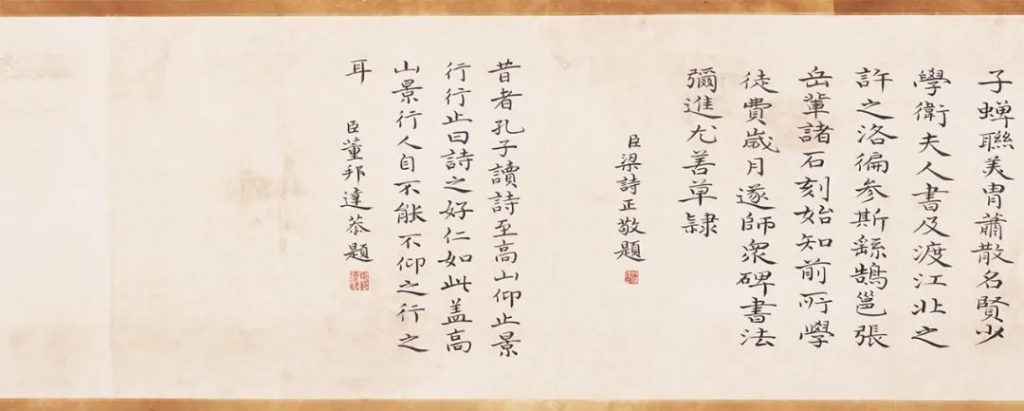 子蟬聯美胄蕭散名賢少
學衛夫人書及渡江北之
許之洛徧參斯繇鵠邕張
岳輩諸石刻始知前所學
徒費歲月遂師衆碑書法
彌進尤善草隷
臣梁詩正敬題
昔者孔子讀詩至高山仰止景
行行止曰詩之好仁如此盖高
山景行人自不能不仰之行之
耳
臣董邦達恭題